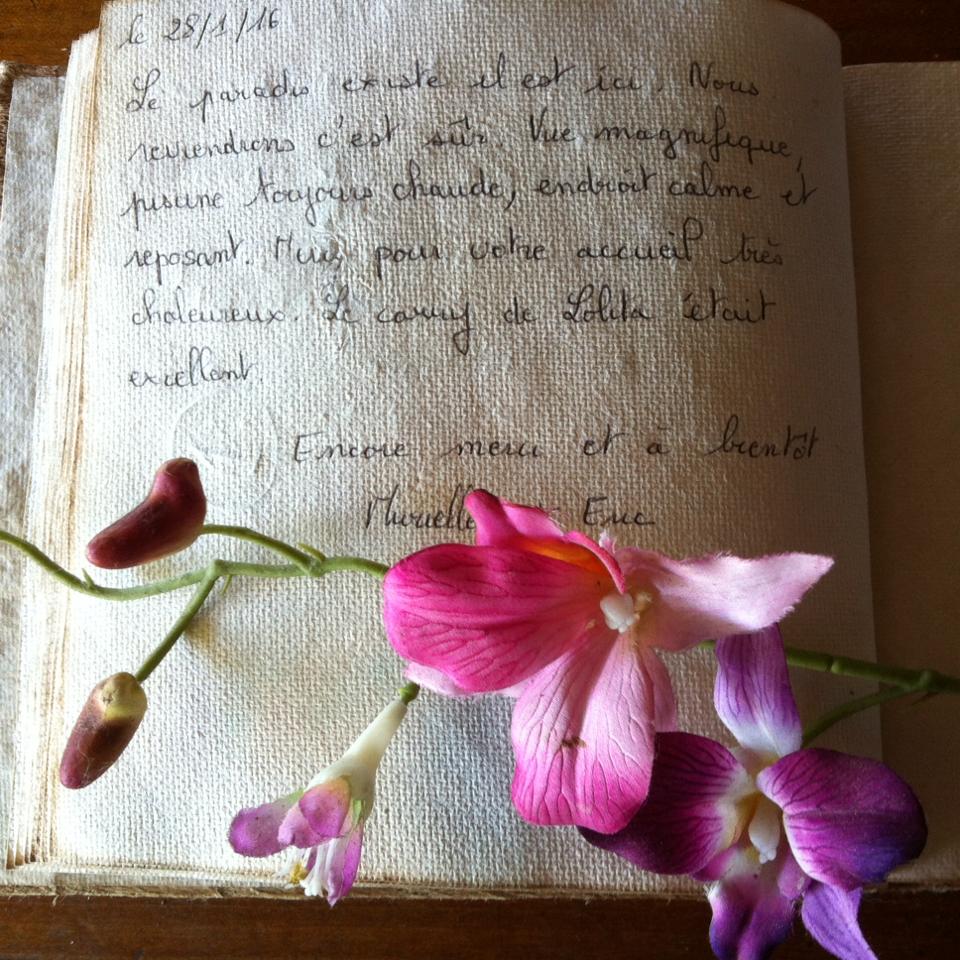 le 28/1/16
Le paradis existe il est ici. Nous
reviendrons c'est sûr. Vue magnifique,
piscine toujours chaude, endroit calme et
reposant. Merci pour votre accueil très
chaleureux. Le carry de Lolita était
excellent.
Encore merci et à bientôt
Murielle Eric